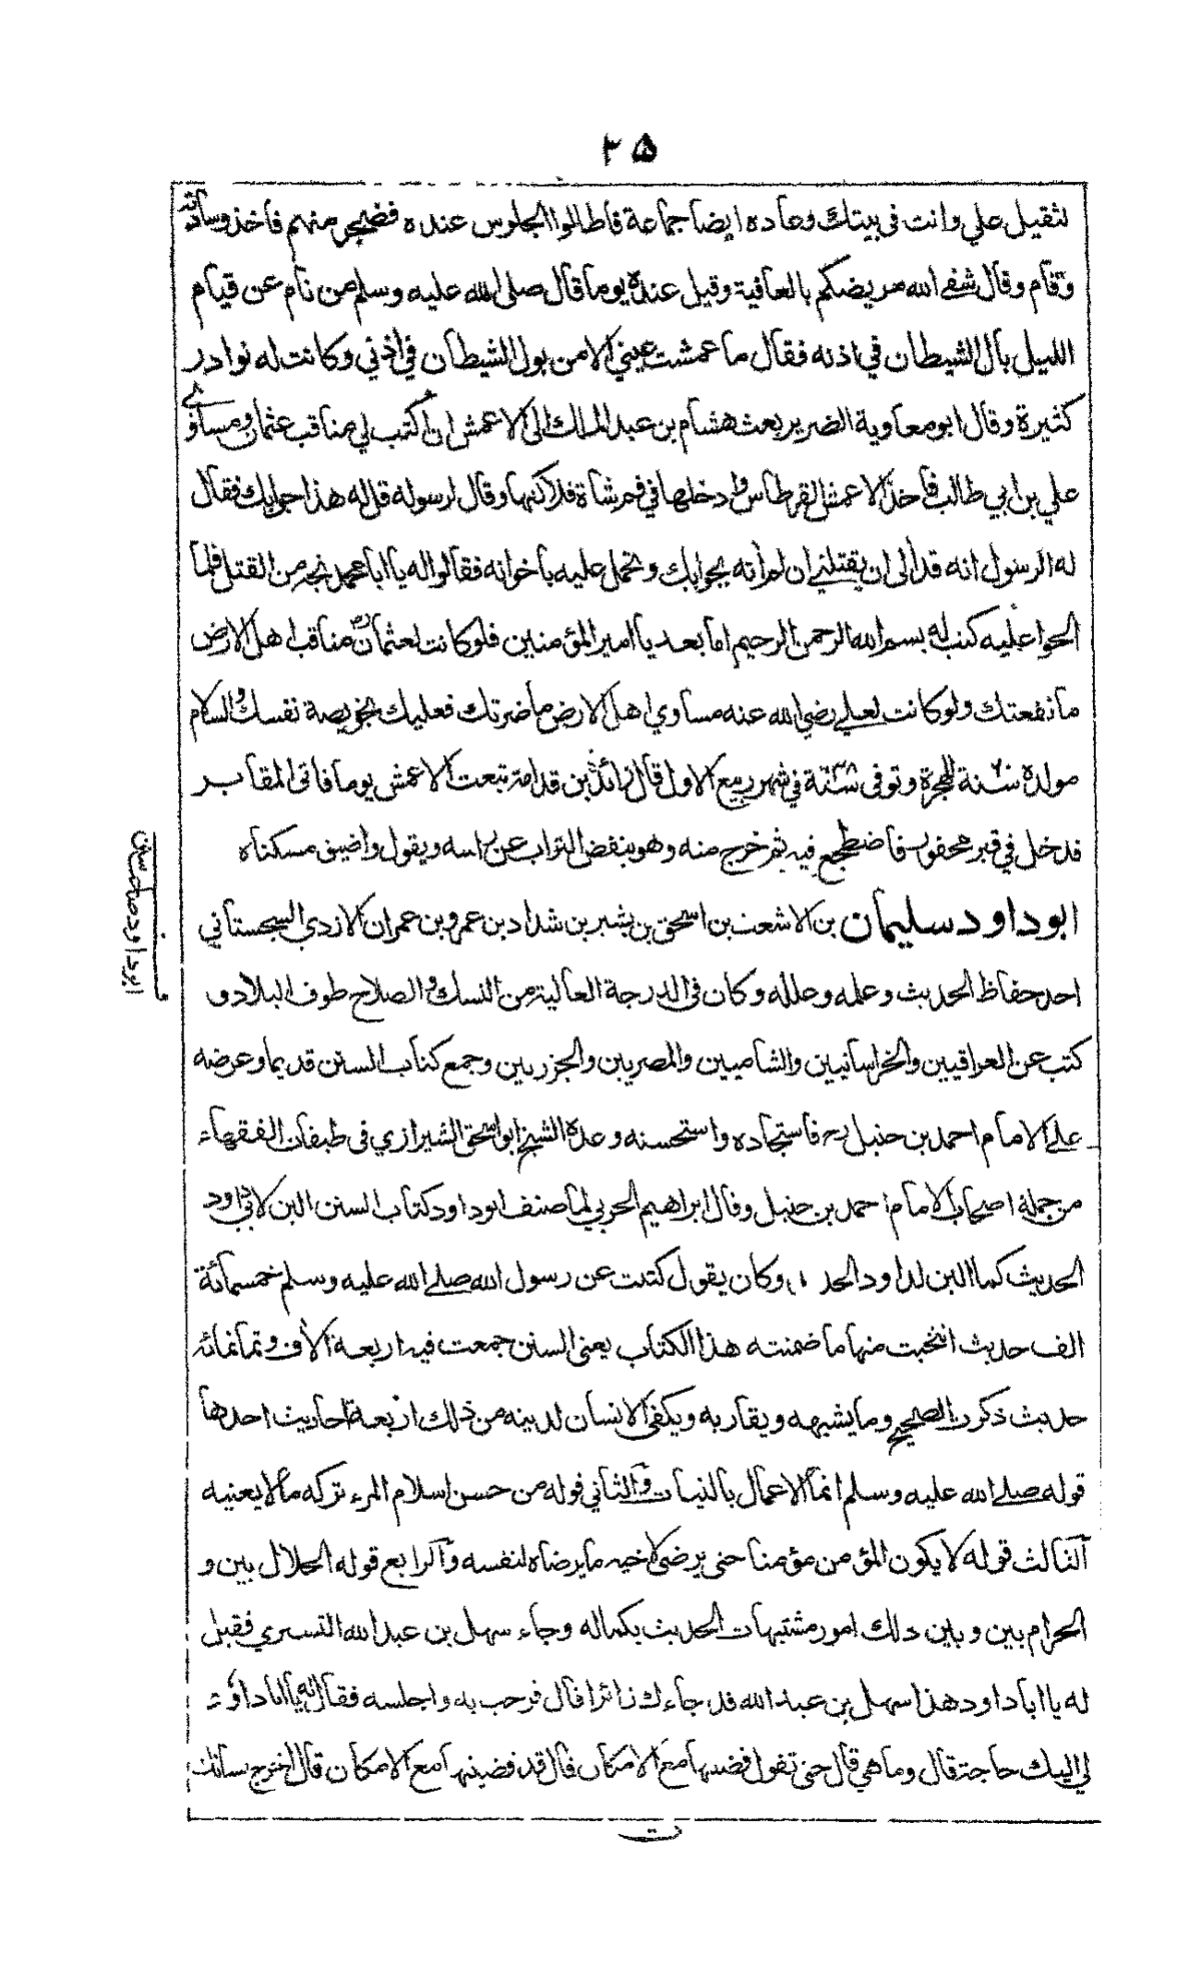 ٢٥
لثقيل علي وانت في بيتك وعاده ايضا جماعة فاطالوا الجلوس عنده فضجر منهم فاخذ وسادته
وقام وقال شفى الله مريضكم بالعافية وقيل عنده يوما قال صلى الله عليه وسلم من نام عن قيام
الليل بال الشيطان في اذنه فقال ما عمشت عيني الا من بول الشيطان في اذني وكانت له نوادر
كثيرة وقال ابو معاوية الضرير بعث هشام بن عبد الملك الى الاعمش ان اكتب لي مناقب عثمان ومساوئ
علي بن ابي طالب فاخذ الاعمش القرطاس وادخلها في فم شاة فلاكتها وقال لرسوله قل له هذا جوابك فقال
له الرسول انه قد آلى ان يقتلني ان لم آته بجوابك وتحمل عليه باخوانه فقالوا له يا ابا محمد نجه من القتل فلما
الحوا عليه كتب له بسم الله الرحمن الرحيم اما بعد يا امير المؤمنين فلو كانت لعثمان رض مناقب اهل الارض
ما نفعتك ولو كانت لعلي رضي الله عنه مساوي اهل الارض ما ضرتك فعليك بخويصة نفسك والسلام
مولده سنة ٦٠ للهجرة وتوفى سنة ١٤٨ في شهر ربيع الاول قال زائدة بن قدامة تبعت الاعمش يوما فاتى المقابر
فدخل في قبر محفور فاضطجع فيه ثم خرج منه وهو ينفض التراب عن راسه ويقول واضيق مسكناه
ابو داود سليمان بن الاشعث بن اسحق بن بشير بن شداد بن عمرو بن عمران الازدي السجستاني
احد حفاظ الحديث وعلمه وعلله وكان في الدرجة العالية من النسك والصلاح طوف البلاد و
كتب عن العراقيين والخراسانيين والشاميين والمصريين والجزريين وجمع كتاب السنن قديما وعرضه
على الامام احمد بن حنبل رح فاستجاده واستحسنه وعده الشيخ ابو اسحق الشيرازي في طبقات الفقهاء
من جملة اصحاب الامام احمد بن حنبل وقال ابراهيم الحربي لما صنف ابو داود كتاب السنن الين لابي داود
الحديث كما الين لداود الحد وكان يقول كتبت عن رسول الله صلى الله عليه وسلم خمسمائة
الف حديث انتخبت منها ما ضمنته هذا الكتاب يعنى السنن جمعت فيه اربعة آلاف وثمانمائه
حديث ذكرت الصحيح وما يشبهه ويقاربه ويكفي الانسان لدينه من ذلك اربعة احاديث احدها
قوله صلى الله عليه وسلم انما الاعمال بالنيات والثاني قوله من حسن اسلام المرء تركه ما لا يعنيه
الثالث قوله لا يكون المؤمن مؤمنا حتى يرضى لاخيه ما يرضاه لنفسه والرابع قوله الحلال بين و
الحرام بين وبين ذلك امور مشتبهات الحديث بكماله وجاء سهل بن عبد الله التستري فقيل
له يا ابا داود هذا سهل بن عبد الله قد جاءك زائرا قال فرحب به واجلسه فقال له يا ابا داود
لي اليك حاجة قال وما هي قال حتى تقول قضيتها مع الامكان قال قد قضيتها مع الامكان قال اخرج لسانك
ابو داود صاحب سنن